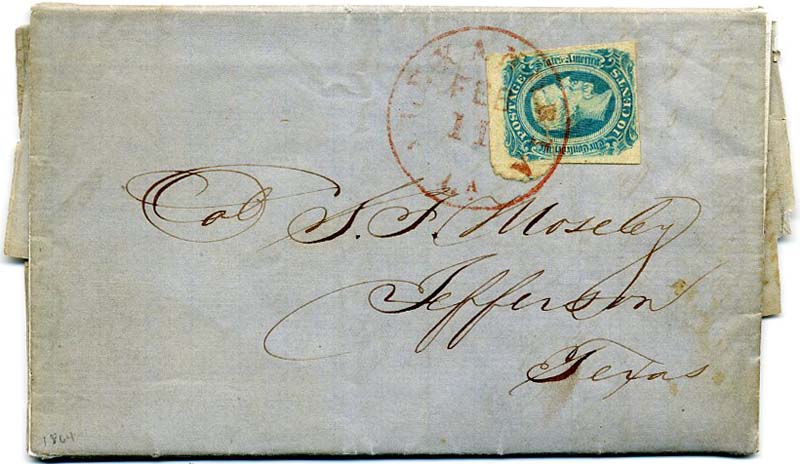 FEB
11
LA
POSTAGE
States of America
The Confederate
10 CENTS
Col S. F. Moseley
Jefferson
Texas.
1864